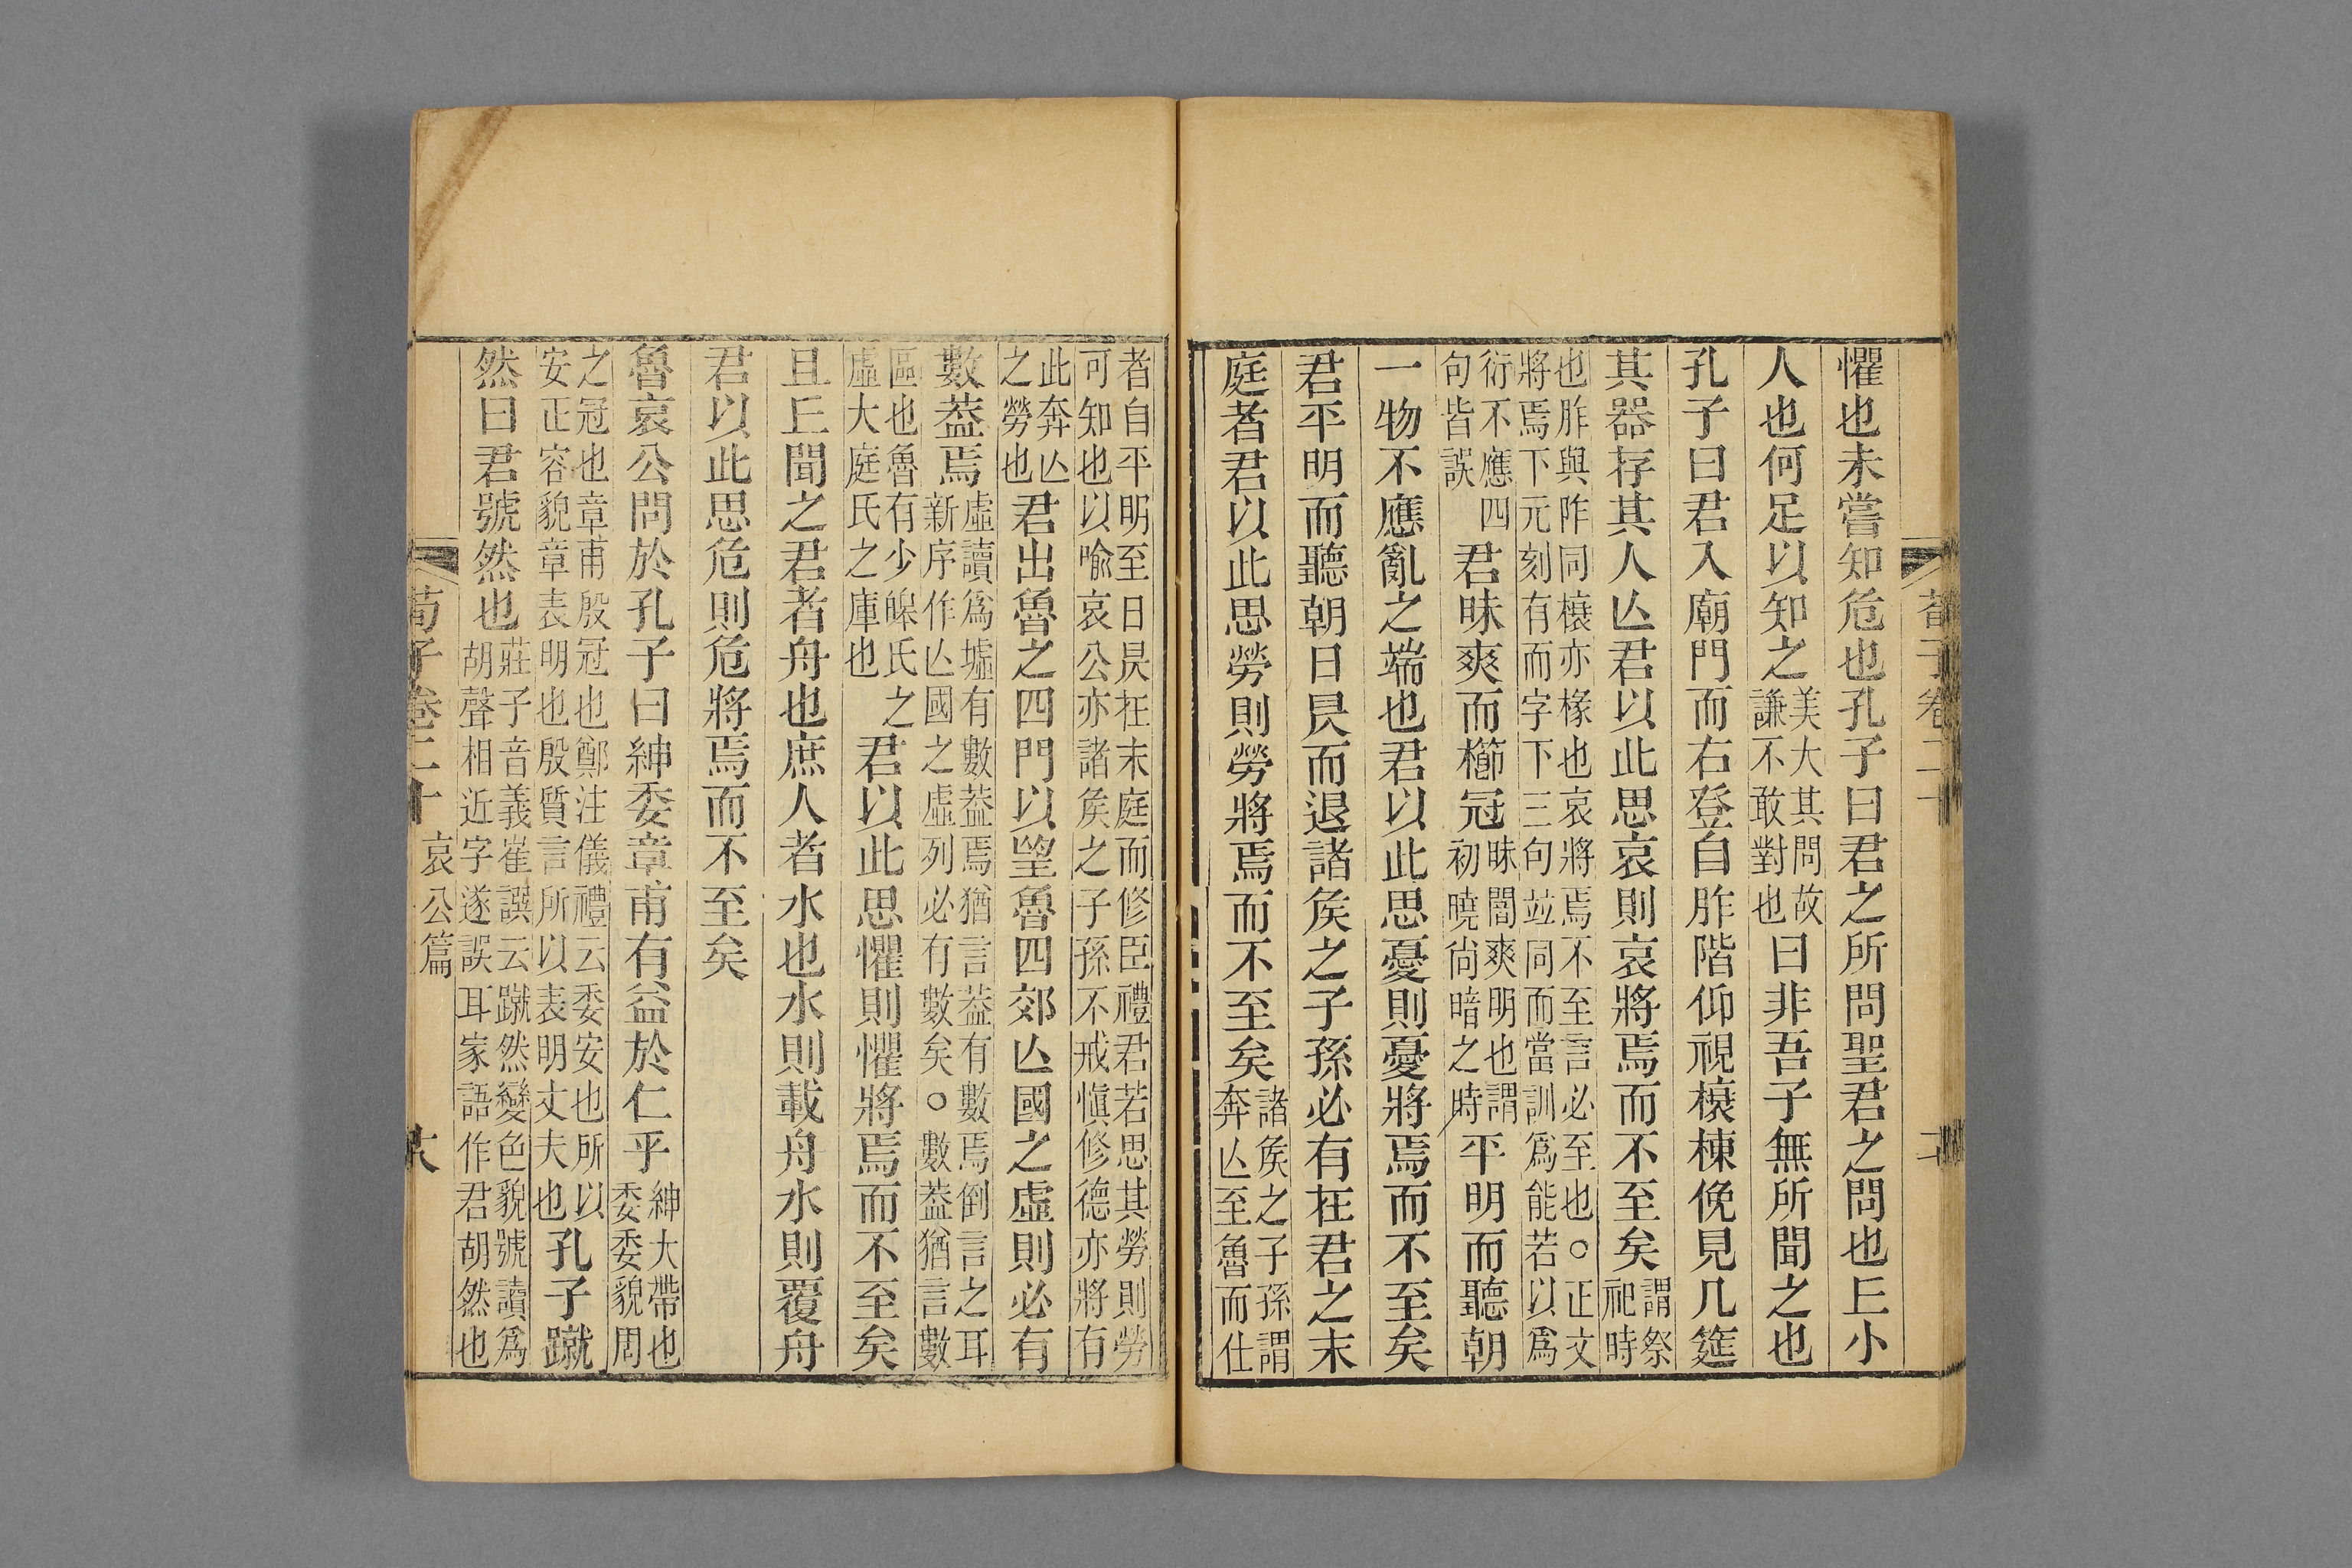 荀子卷二十
懼也未嘗知危也孔子曰君之所問聖君之問也𠀉小
人也何足以知之美大其問故
謙不敢對也曰非吾子無所聞之也
孔子曰君入廟門而右登自胙階仰視榱棟俛見几筵
其器存其人亾君以此思哀則哀將焉而不至矣謂祭
祀時
也胙與阼同榱亦椽也哀將焉不至言必至也○正文
將焉下元刻有而字下三句竝同而當訓爲能若以爲
衍不應四
句皆誤君昧爽而櫛冠昧闇爽明也謂
初曉尚暗之時平明而聽朝
一物不應亂之端也君以此思憂則憂將焉而不至矣
君平明而聽朝日昃而退諸矦之子孫必有在君之末
庭者君以此思勞則勞將焉而不至矣諸矦之子孫謂
奔亾至魯而仕
者自平明至日昃在末庭而修臣禮君若思其勞則勞
可知也以喻哀公亦諸矦之子孫不戒愼修德亦將有
此奔亾
之勞也君出魯之四門以望魯四郊亾國之虛則必有
數葢焉虛讀爲墟有數葢焉猶言葢有數焉倒言之耳
新序作亾國之虛列必有數矣○數葢猶言數
區也魯有少皞氏之
虛大庭氏之庫也君以此思懼則懼將焉而不至矣
且𠀉聞之君者舟也庶人者水也水則載舟水則覆舟
君以此思危則危將焉而不至矣
魯哀公問於孔子曰紳委章甫有益於仁乎紳大帶也
委委貌周
之冠也章甫殷冠也鄭注儀禮云委安也所以
安正容貌章表明也殷質言所以表明丈夫也孔子蹴
然曰君號然也莊子音義崔譔云蹴然變色貌號讀爲
胡聲相近字遂誤耳家語作君胡然也
荀子卷二十 哀公篇